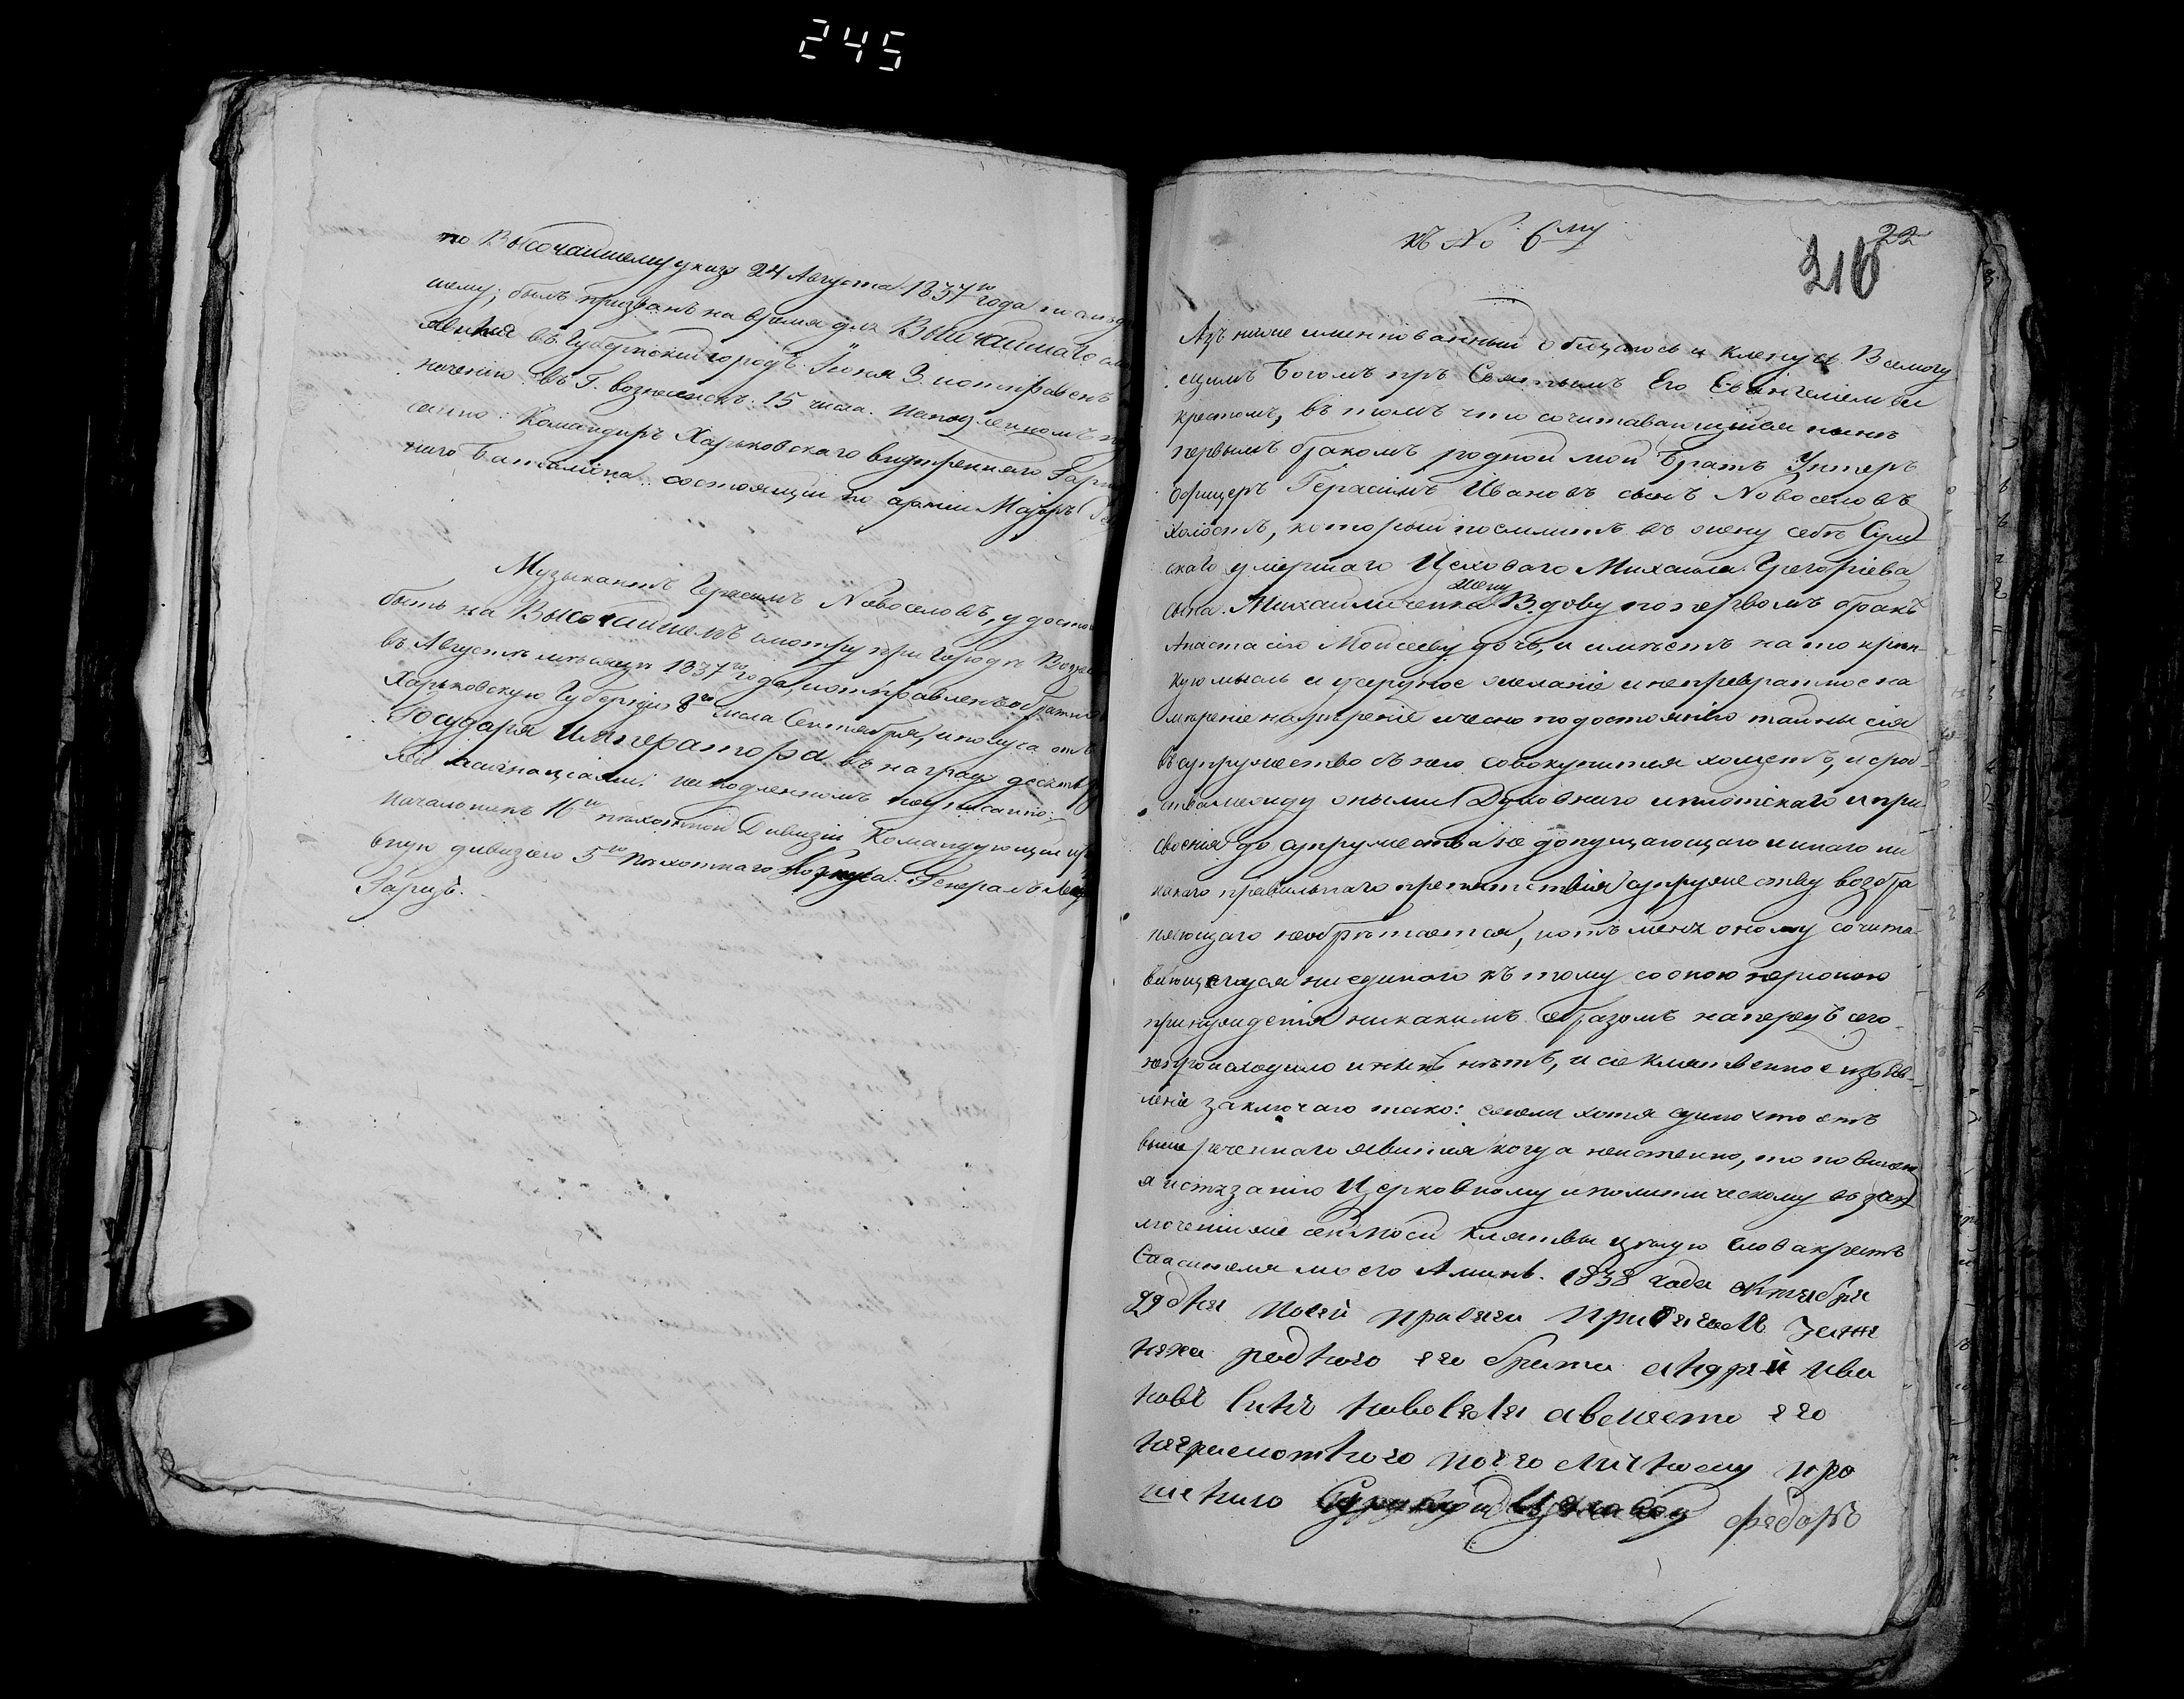 245
по Высочайшему указу 24 Августа 1837го года послѣд
шему, былъ призванъ на время для Высочайшаго
въ Губернскій городъ. Іюня 3. и отправленъ
въ Г. Вознесенскъ. 15 числа. На подленномъ
Командиръ Харьковскаго внутренняго Гарни
ннаго баталіона состоящій по арміи Маіоръ
Музыкантъ Герасимъ Новоселовъ, удосто
быть на Высочайшемъ смотру при Городѣ Возне
въ Августѣ мѣсяцѣ 1837го года, и отправленъ обратно
Харьковскую Губернію 8го числа Сентября, и получа отъ
Государя Императора въ награду десять
лей ассигнаціями. На подленномъ подписано:
Начальникъ 16й пѣхотной Дивизіи Командующій
вную дивизіею 5го Пѣхотнаго Корпуса. Генералъ
къ № 6му
22
216
Азъ ниже имянованный обещаюсь и клянусь Всемогу
щимъ Богомъ прѣ Святымъ Его Евангеліем и
крестомъ, въ томъ что сочитавающійся нынѣ
первымъ бракомъ родной мой братъ Унтеръ
Офицеръ Герасимъ Ивановъ сынъ Новоселовъ
холостъ, который поемлитъ въ жену себѣ Сум
скаго умершаго Цеховаго Михаила Григоріева
жену
сына Михайличенка Вдову по первомъ бракѣ
Анастасію Моисееву дочь, и имѣетъ на то крѣп-
кую мысль и усердное желаніе и непревратное на
мѣреніе намѣреніе и чесно по достоянію тайны сія
въ супружество съ нею совокупится хощетъ, и срод-
ства между оными Духовнаго и плотскаго и при
своенія до супружества не допущающаго и инаго ни
какого правильнаго препятствія супружеству возбра
няющаго необрѣтается, и отъ меня оному сочита
вающемуся ни единаго къ тому со оною персоною
принужденія никакимъ образомъ напередъ сего
непроисходило и нынѣ нѣтъ, и сіе клятвенное изъяв-
леніе заключаю тако: ежели хотя едино что отъ
выше реченнаго явится когда неистенно, то повиненъ
я истязанію Церковному и политическому въ зак
люченіи же сей моей клятвы целую слова и крестъ
Спасителя моего Аминь. 1838 года октября
29 дня посей присяги присягалъ жени
хяха родного его брата андрѣй ива
новъ синъ новоселя авместо его
неграмотного поего личному про
шению федоръ